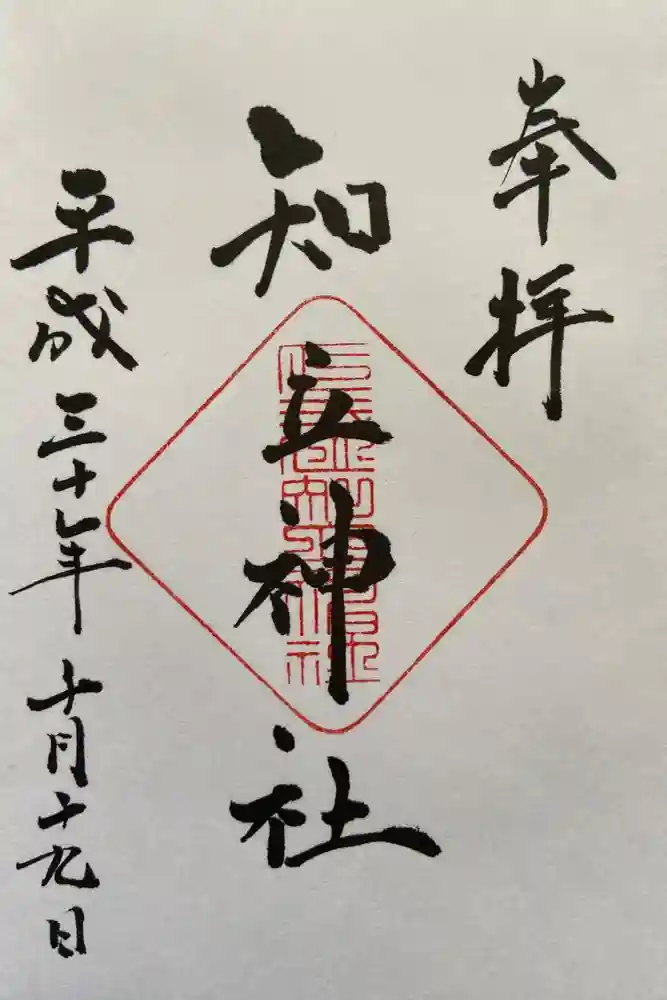 奉拝
知立神社
平成三十年十月十九日